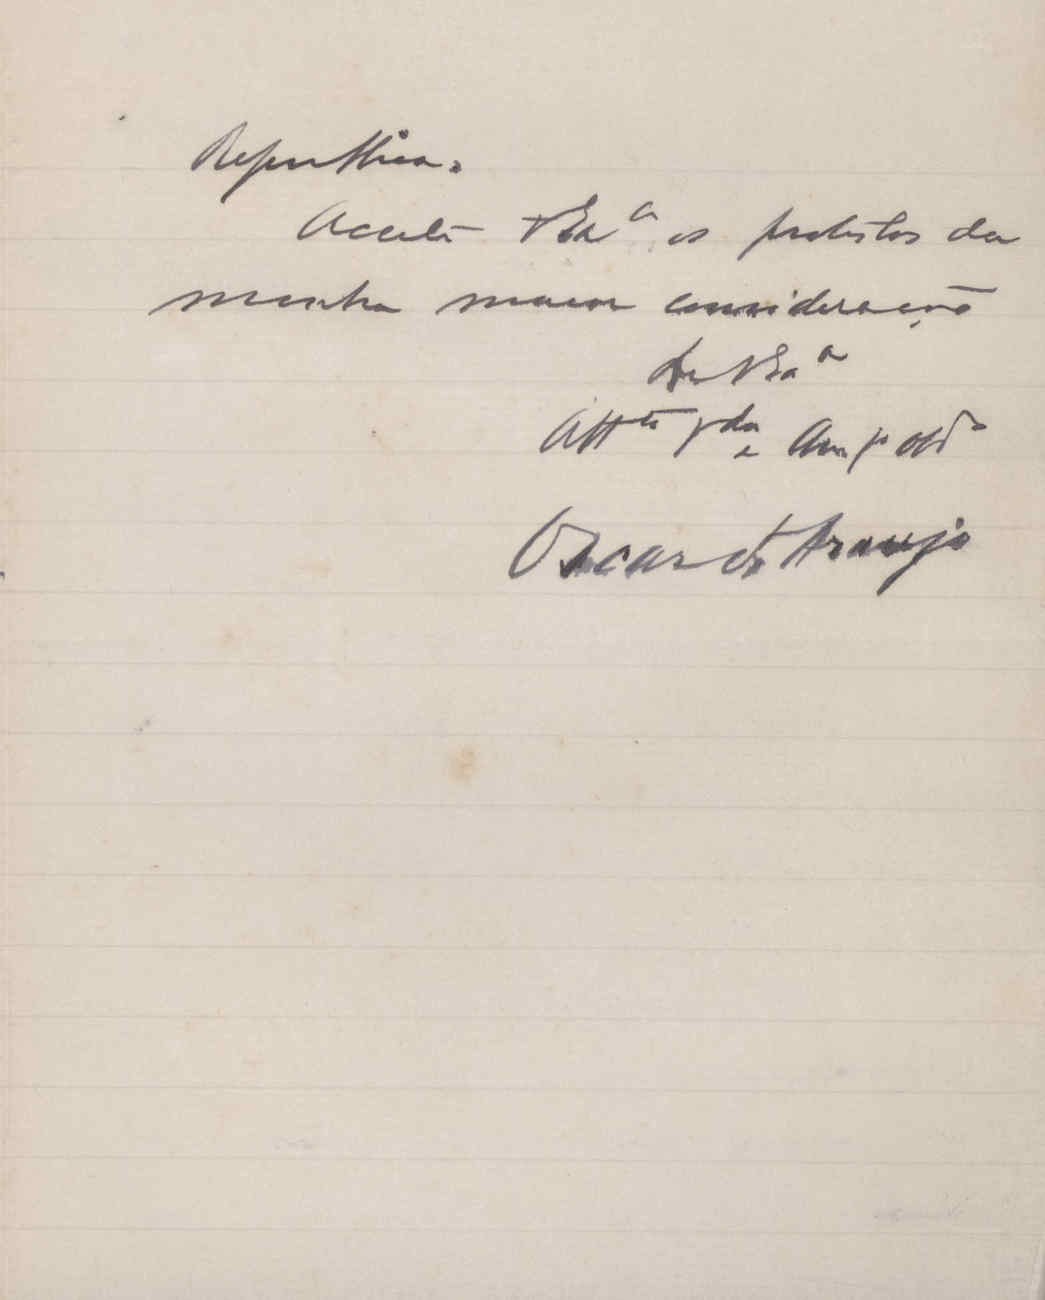 Republica.
Acceite V Exa os protestos da
minha maior consideração
De V Exa
Attto V dor e Amo Obrdo
Oscar de Araujo